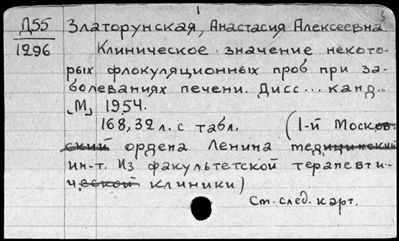 Д55 Златорунская, Анастасия Алексеевна
1296 Клиническое значение некото-
рых флокуляционных проб при за-
болеваниях печени. Дисс... канд...
[М] 1954.
168,32 л. с табл. (1-й Москов-
ский ордена Ленина медицинский
ин-т. Из факультетской терапевти-
ческой клиники)
См. след. карт.